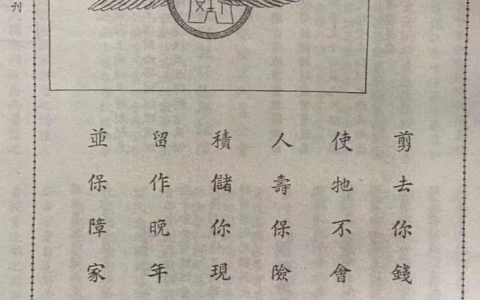 剪去你錢
使牠不會
人壽保險
積儲你現
留作晚年
並保障家
刊